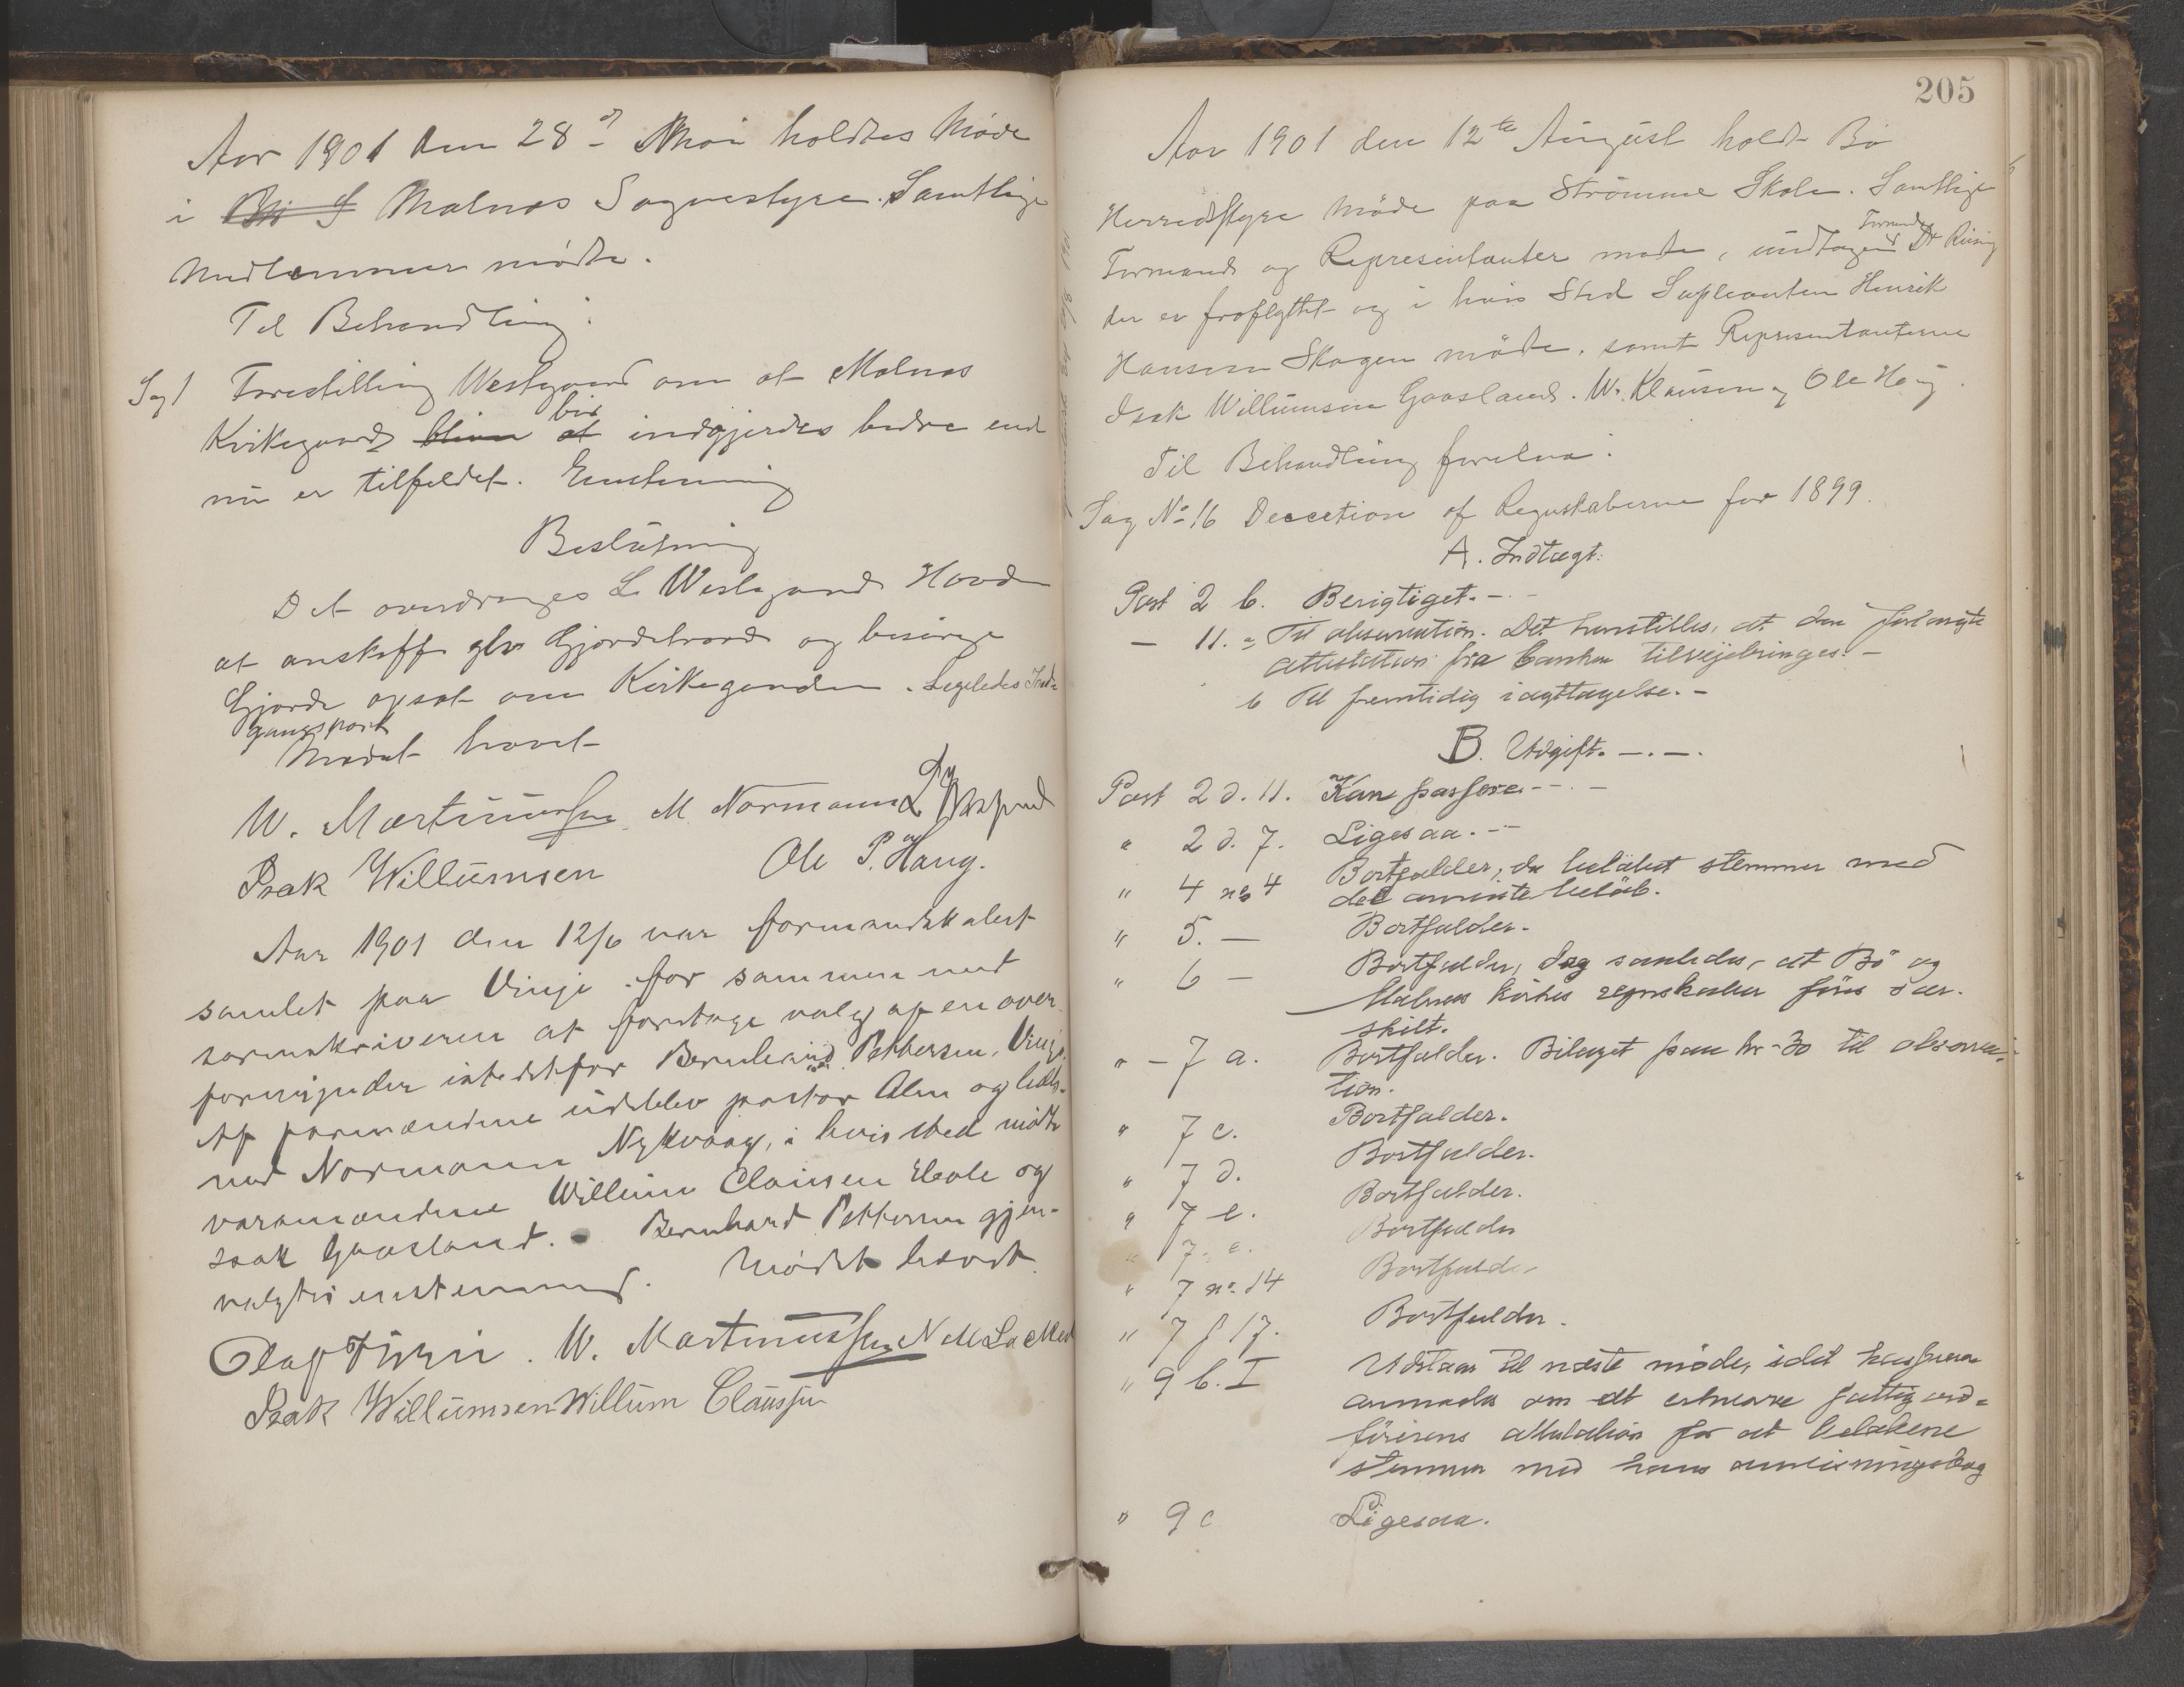 Aar 1901 den 28d Mai holdtes Møde
i Malnæs Sognestyre. Samtlige
Medlemmer mødte.
Til Behandling:
Sag 1 Forestilling Westgaard om at Malnæs
Kirkegaard blir indgjerdes bedre end
nu er tilfeldet. Enstemmig
Beslutning
Det overdrages L Westgaard Hovden
at anskaffe glv Gjordetraad og besørge
Gjorde opsat om Kirkegaarden. Ligeledes Ind-
gangsport
Mødet hævet
W. Martinussen M Normann L Westgaard
Isak Willumsen Ole P. Haug.
Aar 1901 den 12/6 var formandskabet
samlet paa Vinje for sammen med
sorenskriveren at foretage valg af en over-
formynder istedetfor Bernhard Pettersen, Vinje.
Af formændene udeblev pastor Alm og
Normann Nykvaag, i hvis sted mødte
varamændene Willum Clausen Hole og
Isak Gaasland. Bernhard Pettersen gjen-
valgtes enstemmig. Mødet hævet.
W. Martinussen
Isak Willumsen Willum Claussen
205
Aar 1901 den 12te August holdt Bø
Herredsstyre Møde paa Strømme Skole. Samtlige
Formænd og Representanter møtte, undtagen Formand Dr Riising
der er fraflyttet og i hvis Sted Supleanten Henrik
Hansen Skagen møtte. samt Representanterne
Isak Willumsen Gaasland. W. Klausen og Ole Haug.
Til Behandling forelaa:
Sag No 16 Decertion af Regnskaberne for 1899.
A. Indtægt:
Post 2 b. Berigtiget.
— 11. a Til observation. Det henstilles, at den forlangte
attestation fra banken tilvejebringes. —
b Til fremtidig iagttagelse. —
B. Udgift. —.—.
Post 2 d. 11. Kan passere.
" 2 d. 7. Ligesaa.
" 4 no 4 Bortfalder, da beløbet stemmer med
det anviste beløb.
" 5. — Bortfalder.
" 6 — Bortfalder, dog saaledes, at Bø og
Malnæs kirkes regnskaber føres sær-
skilt.
" — 7 a. Bortfalder. Bilaget paa kr 30 til observa-
tion.
" 7 c. Bortfalder.
" 7 d. Bortfalder.
" 7 e. Bortfalder.
" 7. e. Bortfalder
" 7 no. 14 Bortfalder
" 7 f 17. Bortfalder.
" 9 b. I Udstaar til næste møde, idet kasserer
anmodes om at erhverve fattigord-
førerens attestation for at beløbene
stemmer med hans anvisningsbog
" 9 c Ligesaa.